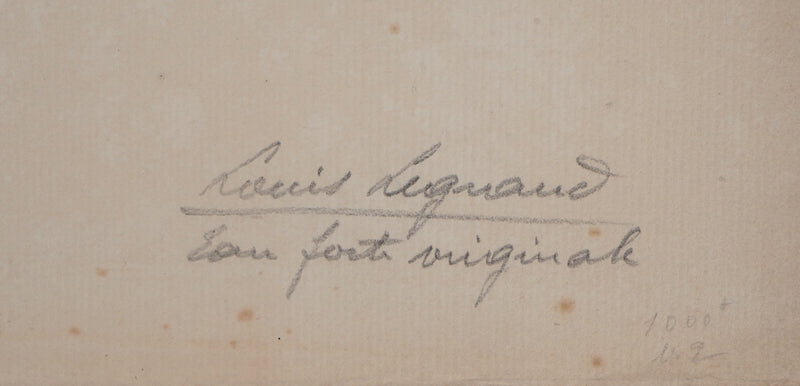 Louis Legrand
Eau forte originale
1000